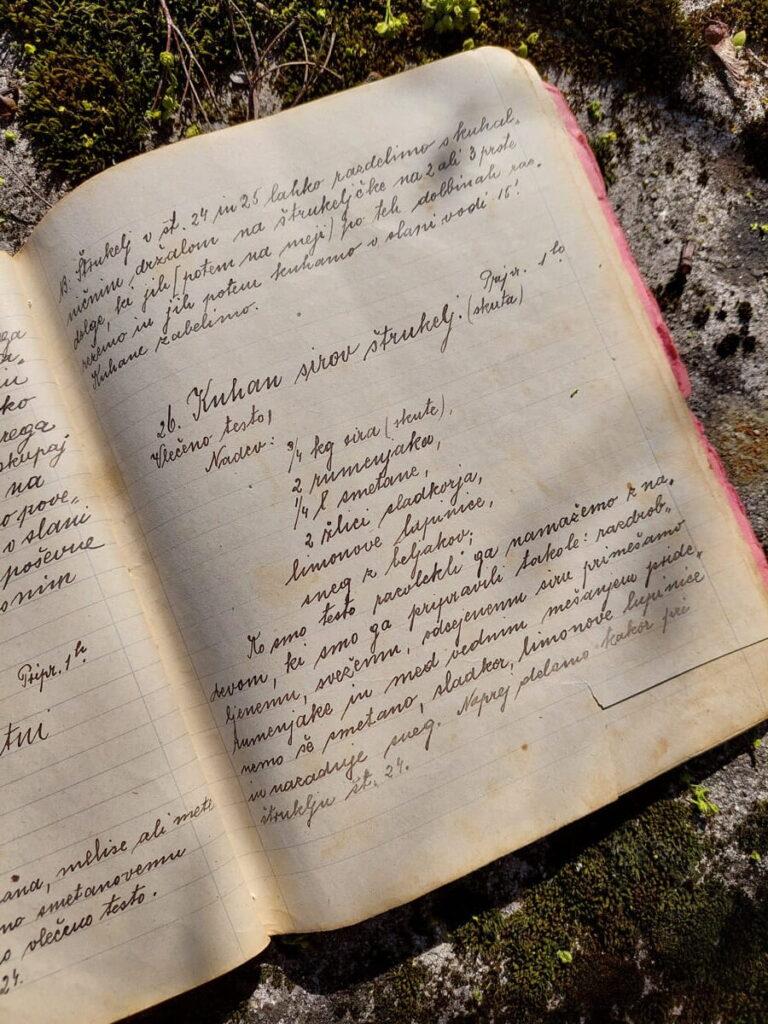 ega
ko
rega
skupaj
na
o pove-
v slani
poševne
Pripr. 1 h
tni
ana, melise ali mete
no smetanovemu
o vlečeno testo.
24.
B. Štrukelj v št. 24 in 25 lahko razdelimo s kuhal-
ničnim držalom na štrukeljčke na 2 ali 3 prste
dolge, ki jih (potem na meji) po teh dolbinah raz-
režemo in jih potem kuhamo v slani vodi 15'.
Kuhane zabelimo.
Pripr. 1 h
26. Kuhan sirov štrukelj. (skuta)
Vlečeno testo,
Nadev: 3/4 kg sira (skute),
2 rumenjakov,
1/4 l smetane,
2 žlici sladkorja,
limonove lupinice,
sneg z beljakov;
Ko smo testo razvlekli ga namažemo z na-
devom, ki smo ga pripravili takole: razdrob-
ljenemu, svežemu, odcejenemu siru primešamo
rumenjake in med vednim mešanjem pride-
nemo še smetano, sladkor, limonove lupinice
in nazadnje sneg. Naprej delamo kakor pri
štruklju št. 24.